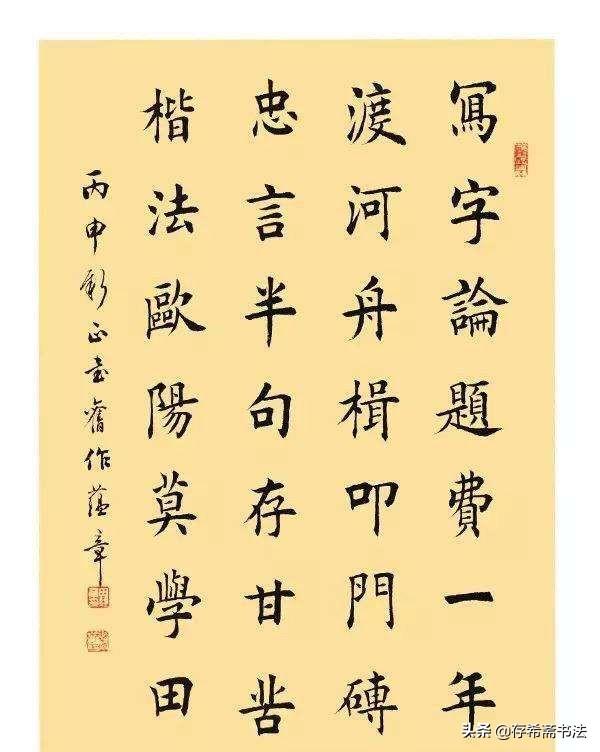 寫字論題費一年
渡河舟楫叩門磚
忠言半句存甘苦
楷法歐陽莫學田
丙申新正書舊作蕴章
头条 @存希斋书法